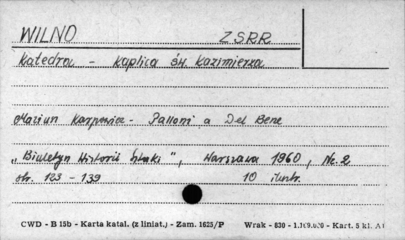 WILNO ZSRR
Katedra - Kaplica św. Kazimierza
Mariun Karpowicz - Palloni a Del Bene
„Biuletyn Historii Sztuki", Warszawa 1960, Nr. 2
str. 123 - 139 10 ilustr.
CWD - B 15b - Karta katal. (z liniat.) - Zam. 1625/P Wrak - 830 - - Kart. 5 kl. A1